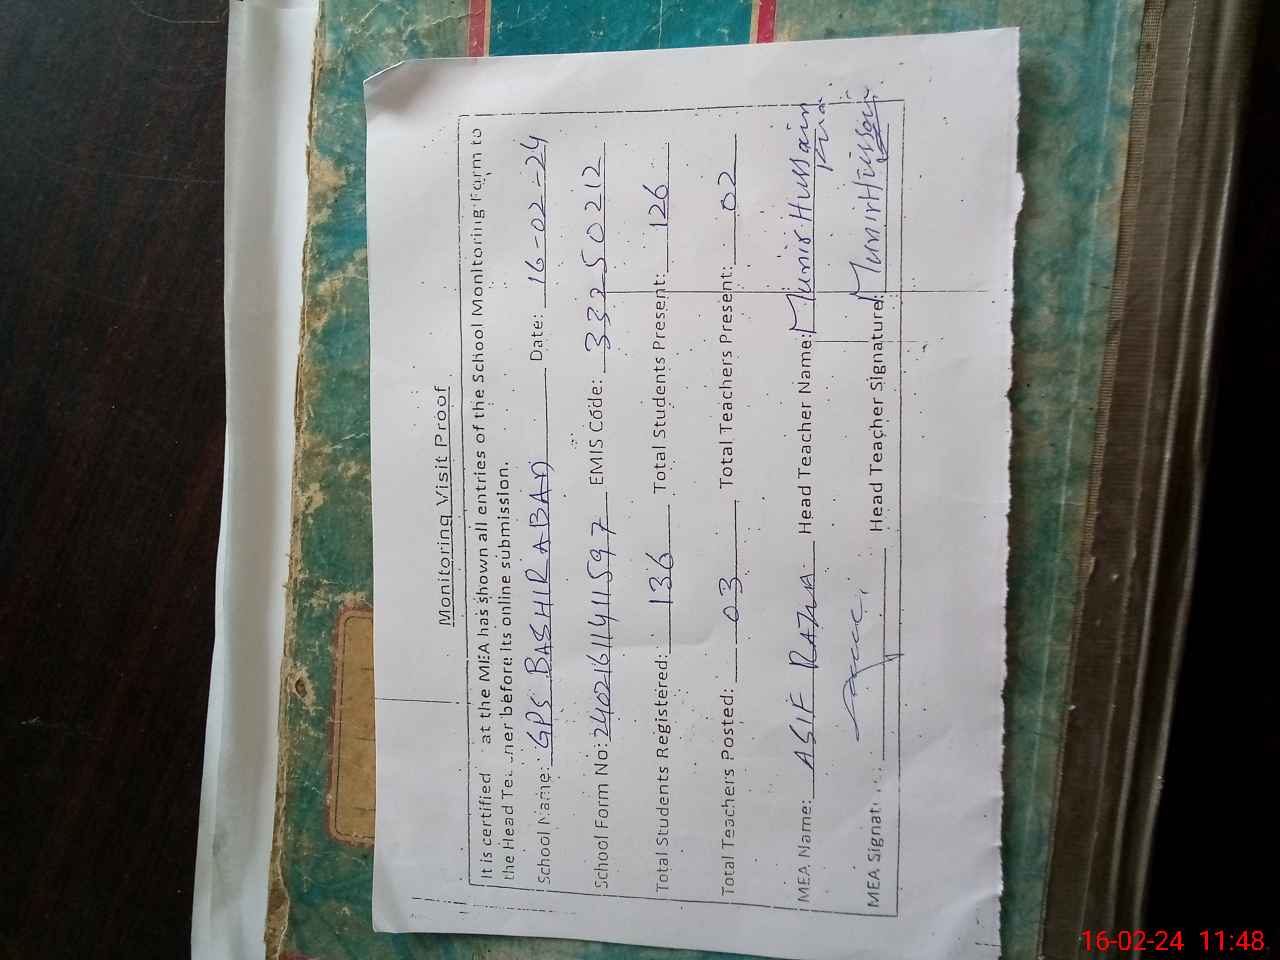 Monitoring Visit Proof
It is certified at the MEA has shown all entries of the School Monitoring Form to
the Head before its online submission.
School Name: GPS BASHIRABAD Date: 16-02-24
School Form No: 24021611411597 EMIS Code: 33250212
Total Students Registered: 136 Total Students Present: 126
Total Teachers Posted: 03 Total Teachers Present: 02
MEA Name: ASIF RAZA Head Teacher Name: Munir Hussain
MEA Signat Head Teacher Signature: Munir Hussain
16-02-24 11:48